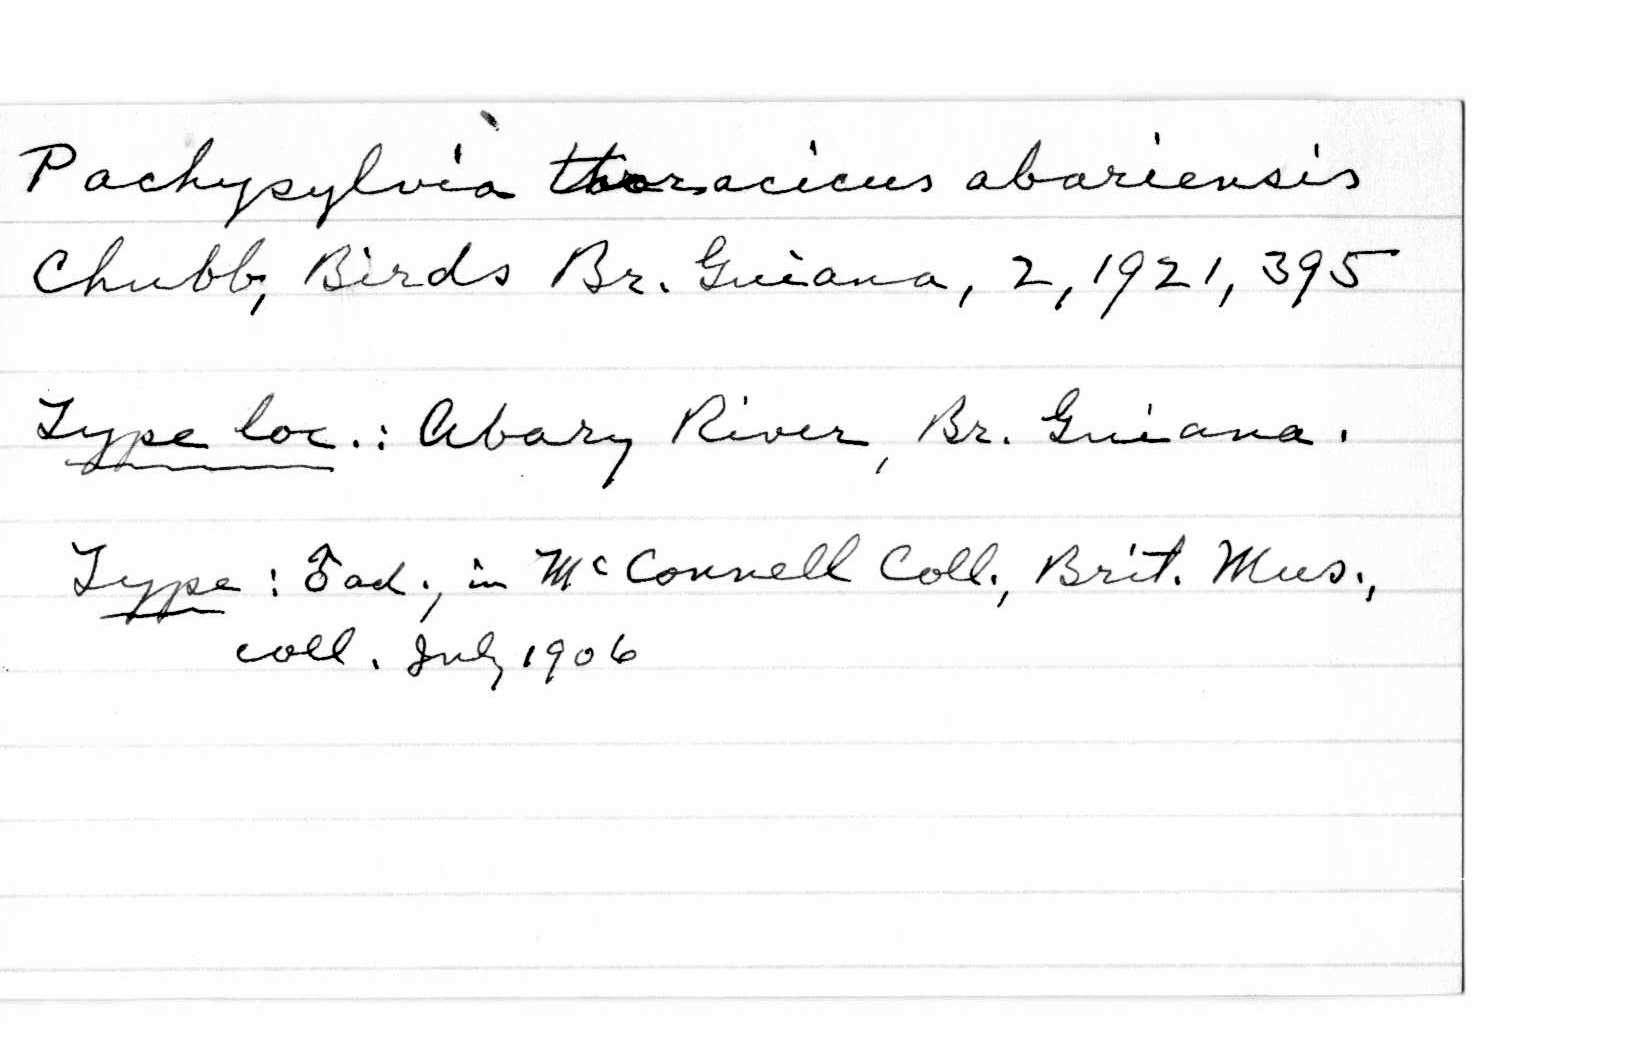 Pachysylvia thoracicus abariensis
Chubb, Birds Br. Guiana, 2, 1921, 395
Type loc.: Abary River, Br. Guiana.
Type: ♂ ad., in McConnell Coll., Brit. Mus.,
coll. July 1906